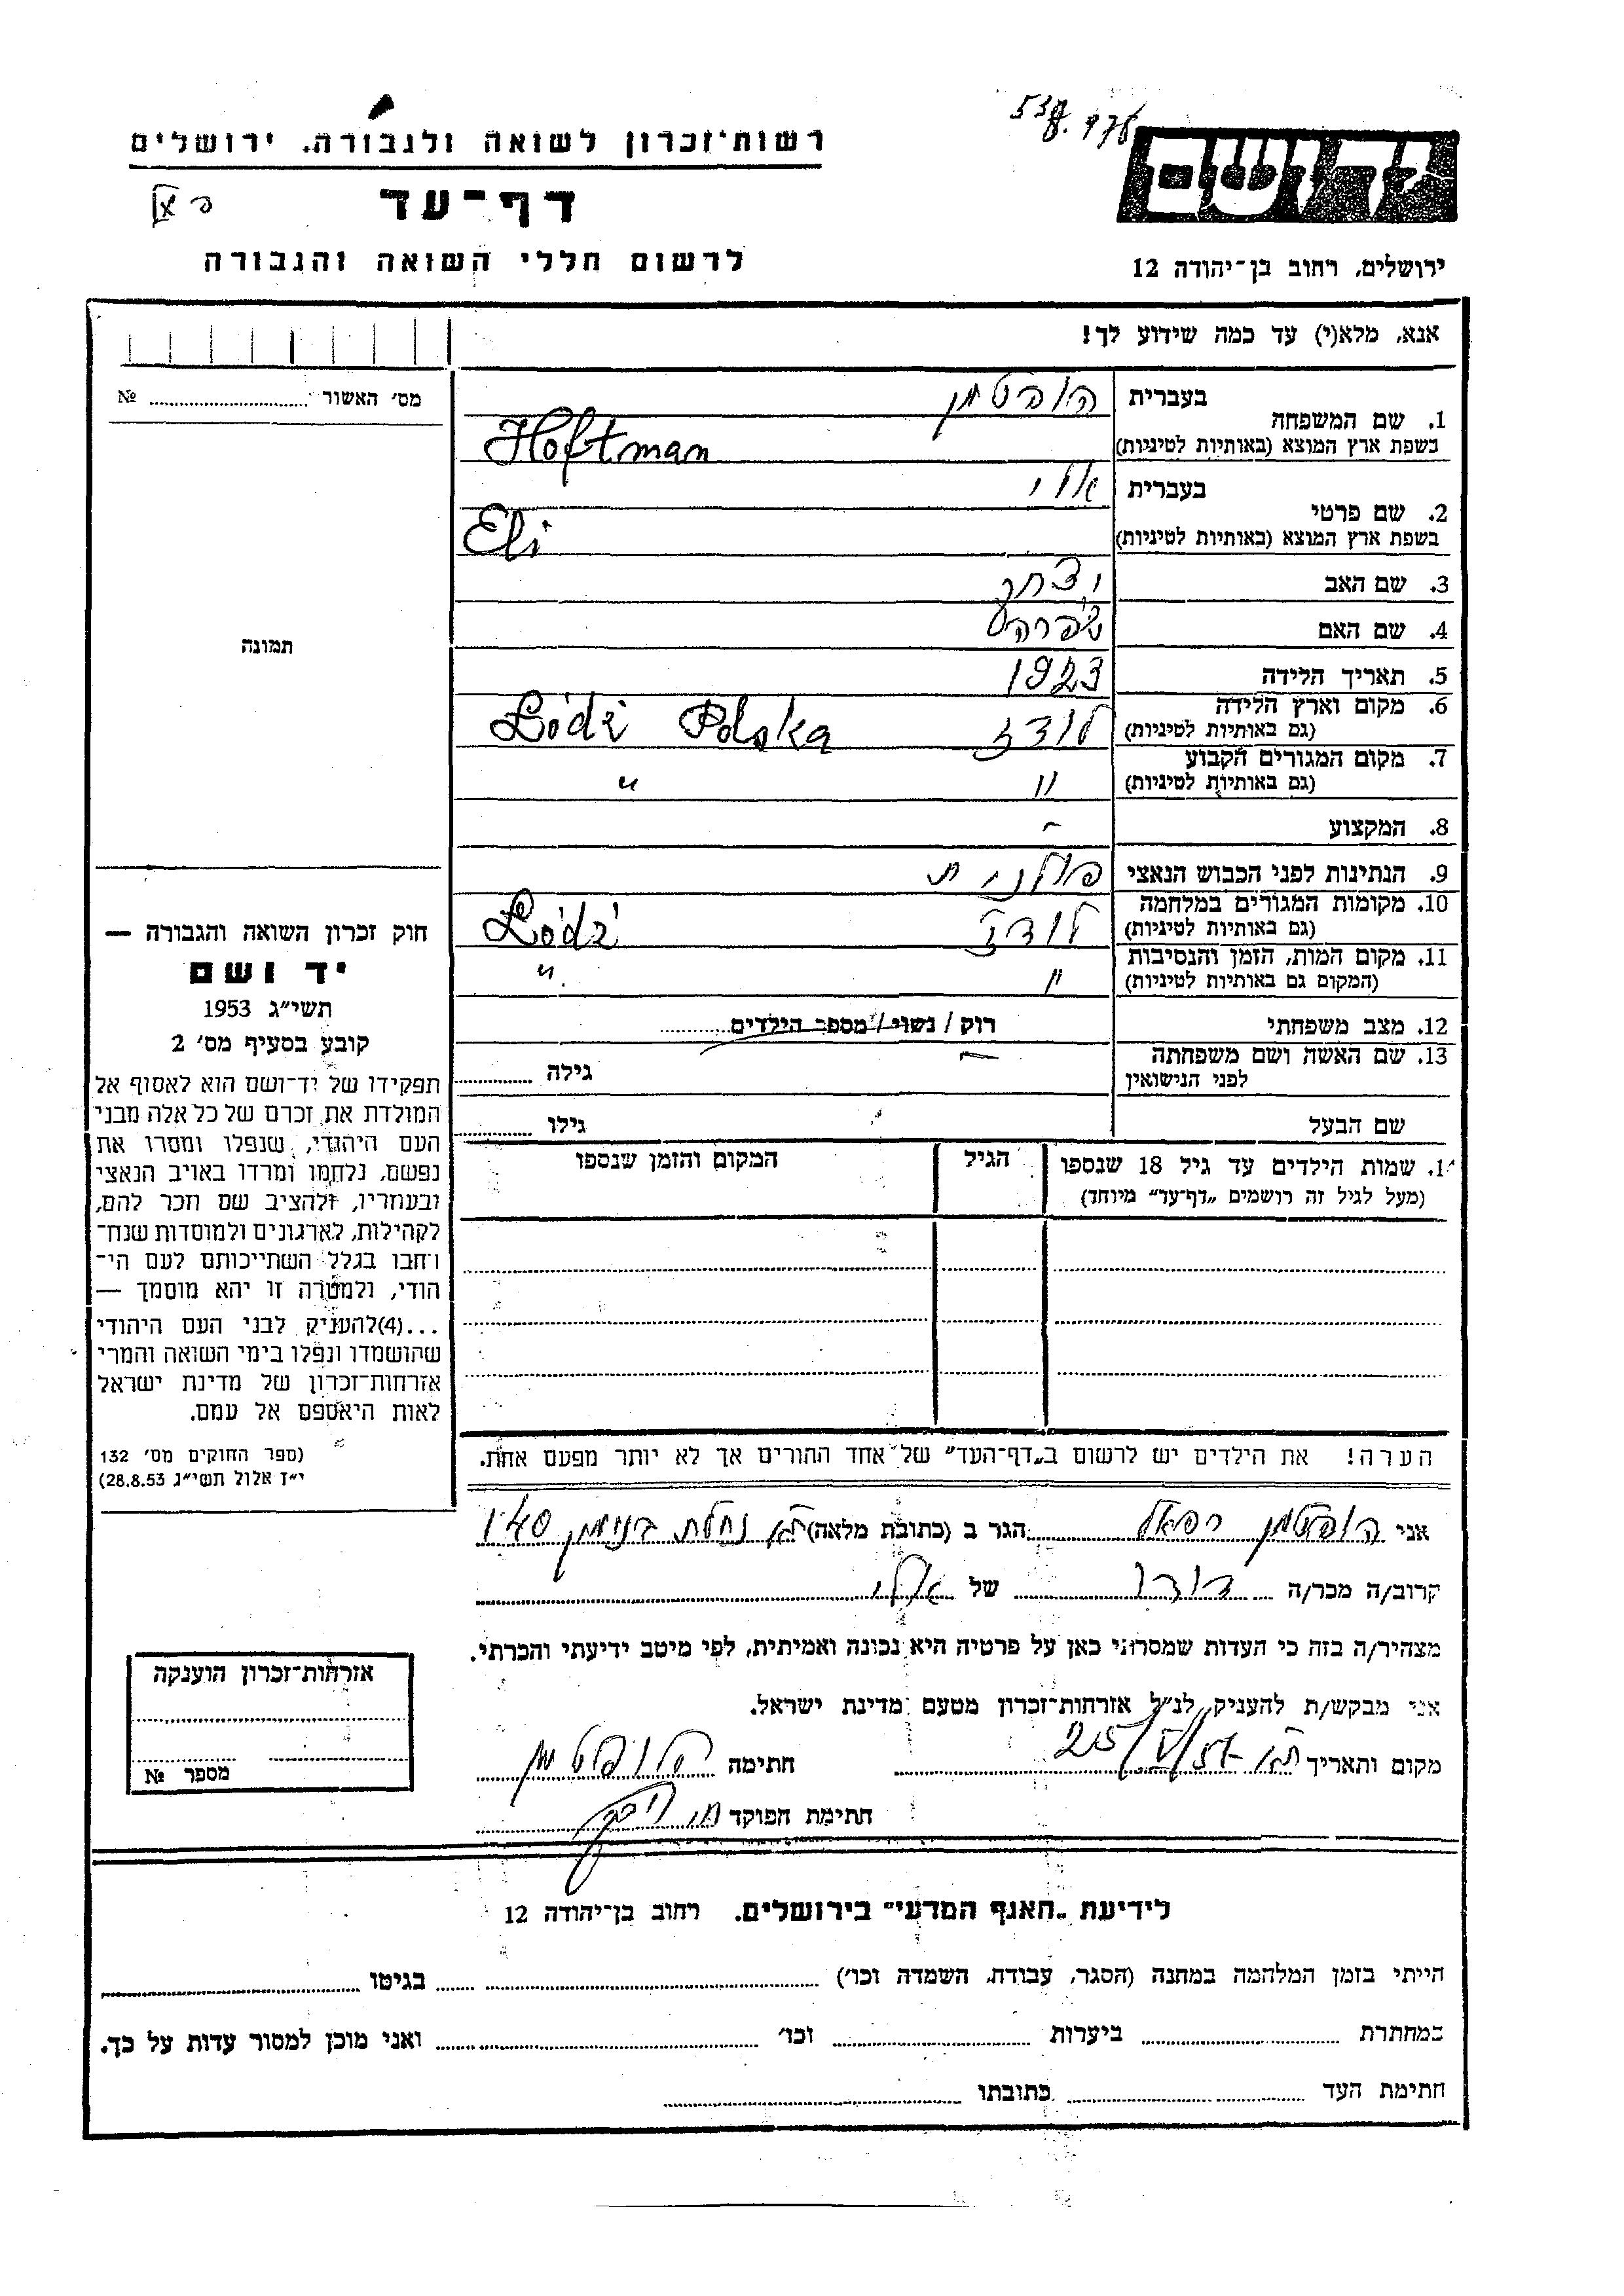 538. 976
רשות־זכרון לשואה ולגבורה. ירושלים
יד ושם
דף־עד
לרשום חללי השואה והגבורה
ירושלים, רחוב בן־יהודה 12
אנא, מלא(י) עד כמה שידוע לך!
מס׳ האשור № ........
1. שם המשפחה בעברית הופטמן
בשפת ארץ המוצא (באותיות לטיניות) Hoftman
2. שם פרטי בעברית אלי
בשפת ארץ המוצא (באותיות לטיניות) Eli
3. שם האב יצחק
4. שם האם שפרה
5. תאריך הלידה 1923
6. מקום וארץ הלידה (גם באותיות לטיניות) לודז Łódź Polska
7. מקום המגורים הקבוע (גם באותיות לטיניות) " "
8. המקצוע -
9. הנתינות לפני הכבוש הנאצי פולנית
10. מקומות המגורים במלחמה (גם באותיות לטיניות) לודז Łódź
11. מקום המות, הזמן והנסיבות (המקום גם באותיות לטיניות) " "
12. מצב משפחתי רוק / נשוי / מספר הילדים ........
13. שם האשה ושם משפחתה לפני הנישואין - גילה ........
שם הבעל גילו ........
תמונה
חוק זכרון השואה והגבורה —
יד ושם
תשי״ג 1953
קובע בסעיף מס׳ 2
תפקידו של יד־ושם הוא לאסוף אל
המולדת את זכרם של כל אלה מבני
העם היהודי, שנפלו ומסרו את
נפשם, נלחמו ומרדו באויב הנאצי
ובעוזריו, ולהציב שם וזכר להם,
לקהילות, לארגונים ולמוסדות שנח־
רחבו בגלל השתייכותם לעם הי־
הודי, ולמטרה זו יהא מוסמך —
...(4)להעניק לבני העם היהודי
שהושמדו ונפלו בימי השואה והמרי
אזרחות־זכרון של מדינת ישראל
לאות היאספם אל עמם.
(ספר החוקים מס׳ 132
י״ז אלול תשי״ג 28.8.53)
1. שמות הילדים עד גיל 18 שנספו הגיל המקום והזמן שנספו
(מעל לגיל זה רושמים „דף־עד״ מיוחד)
הערה! את הילדים יש לרשום ב„דף־העד״ של אחד ההורים אך לא יותר מפעם אחת.
אני הופטמן רפאל הגר ב (כתובת מלאה) ת״א נחלת בנימין 140
קרוב/ה מכר/ה דודו של אלי
מצהיר/ה בזה כי העדות שמסרתי כאן על פרטיה היא נכונה ואמיתית, לפי מיטב ידיעתי והכרתי.
אני מבקש/ת להעניק לנ״ל אזרחות־זכרון מטעם מדינת ישראל.
מקום ותאריך ת״א 25/V/57 חתימה הופטמן
חתימת הפוקד
אזרחות־זכרון הוענקה
מספר №
לידיעת „האגף המדעי״ בירושלים. רחוב בן־יהודה 12
הייתי בזמן המלחמה במחנה (הסגר, עבודה, השמדה וכו׳) ........ בגיטו ........
במחתרת ........ ביערות ........ וכו׳ ........ ואני מוכן למסור עדות על כך.
חתימת העד ........ כתובתו ........